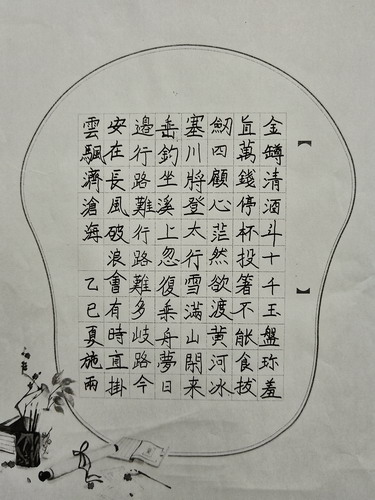 金罇清酒斗十千玉盤珎羞
直萬錢停杯投箸不能食拔
劒四顧心茫然欲渡黄河冰
塞川將登太行雪滿山閑來
垂釣坐溪上忽復乗舟夢日
邊行路難行路難多岐路今
安在長風破浪會有時直掛
雲颿濟滄海 乙巳夏施雨